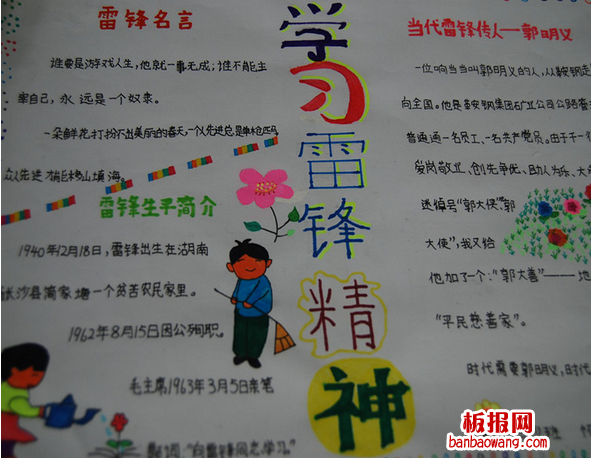 雷锋名言
谁要是游戏人生，他就一事无成；谁不能主
宰自己，永远是一个奴隶。
一朵鲜花打扮不出美丽的春天，一个人先进总是单枪匹马，
众人先进才能移山填海。
雷锋生平简介
1940年12月18日，雷锋出生在湖南
长沙县简家塘一个贫苦农民家里。
1962年8月15日因公殉职。
毛主席1963年3月5日亲笔
题词："向雷锋同志学习。"
学习雷锋精神
当代雷锋传人——郭明义
一位响当当叫郭明义的人，从鞍钢走
向全国。他是鞍钢集团矿业公司公路
普通通一名员工、一名共产党员。由于
爱岗敬业、创先争优、助人为乐、大
送绰号"郭大侠"。郭
大侠"，我又给
他加了一个："郭大善"——地
"平民慈善家"。
时代需要郭明义，时代
板报网
banbaowang.com